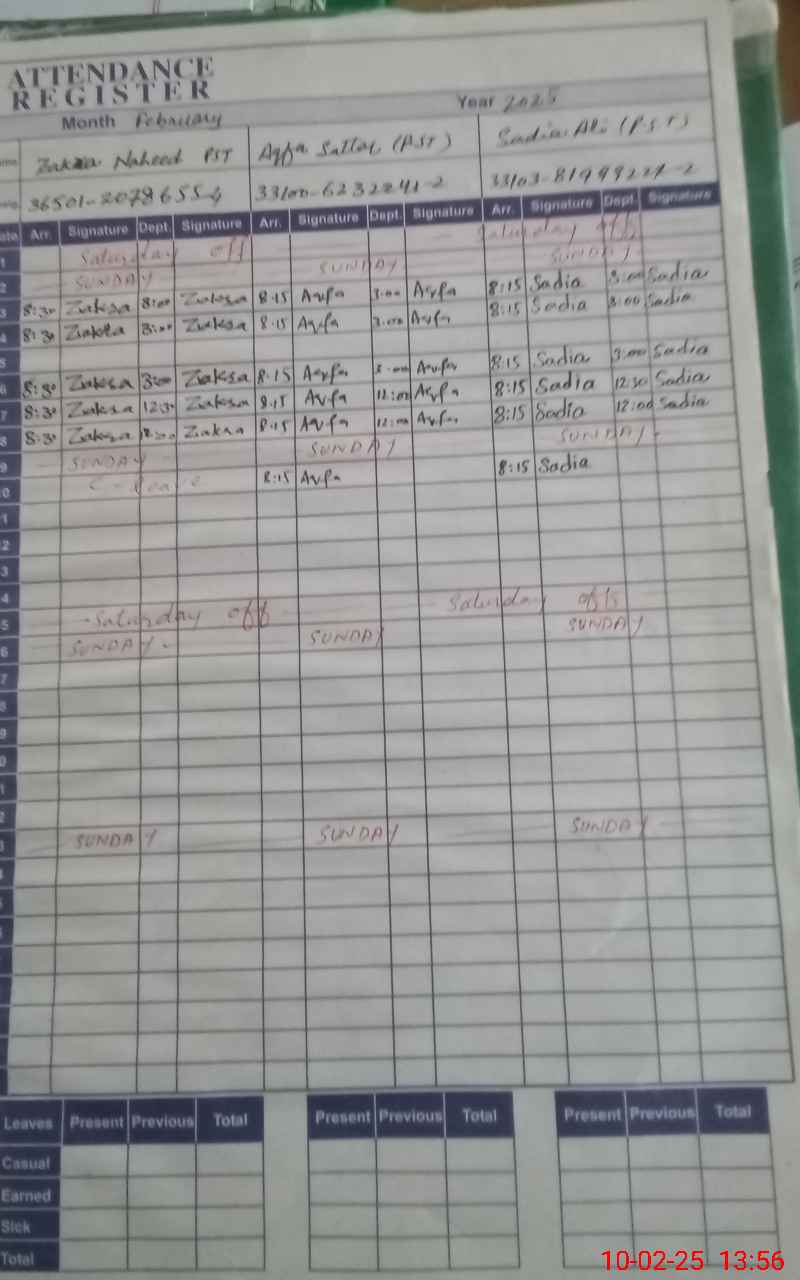 ATTENDANCE
REGISTER
Month February Year 2025
Naheed PST Aqfa Sattar (PST) Sadia Ali (PST)
33100-6232241-2
Arr. Signature Dept. Signature Arr. Signature Dept. Signature Arr. Signature Dept. Signature
1 Saturday off Saturday off
2 SUNDAY SUNDAY SUNDAY
3 8:30 Zaksa 3:00 Zaksa 8.15 Aqfa 3.00 Aqfa 8:15 Sadia 3:00 Sadia
4 8:30 Zaksa 3:00 Zaksa 8.15 Aqfa 3.00 Aqfa 8:15 Sadia 3:00 Sadia
5
6 8:30 Zaksa 3:00 Zaksa 8.15 Aqfa 3.00 Aqfa 8:15 Sadia 3:00 Sadia
7 8:30 Zaksa 12:30 Zaksa 8.15 Aqfa 12:00 Aqfa 8:15 Sadia 12:30 Sadia
8 8:30 Zaksa Zaksa 8.15 Aqfa 12:00 Aqfa 8:15 Sadia 12:00 Sadia
9 SUNDAY SUNDAY SUNDAY
0 C-leave 8:15 Aqfa 8:15 Sadia
1
2
3
4
5 Saturday off Saturday off
6 SUNDAY SUNDAY SUNDAY
7
8
9
0
1
2
3 SUNDAY SUNDAY SUNDAY
Leaves Present Previous Total Present Previous Total Present Previous Total
Casual
Earned
Sick
Total
10-02-25 13:56